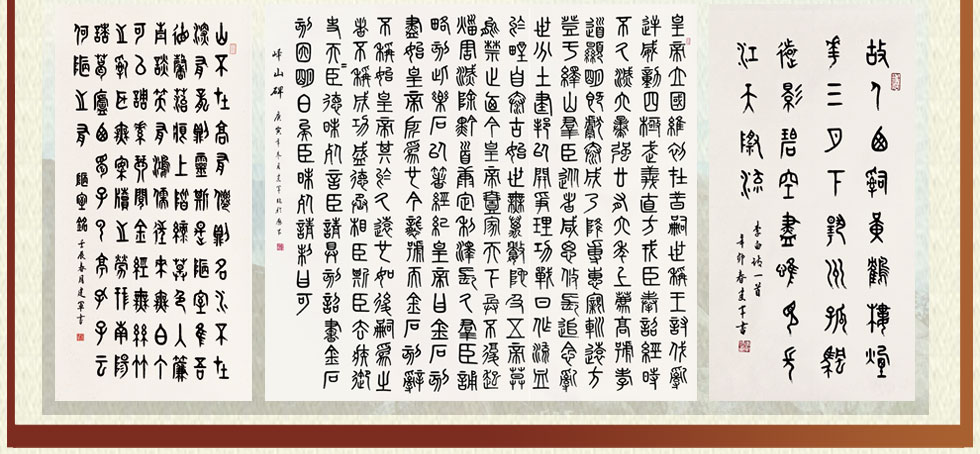 故人西辭黃鶴樓煙
華三月下揚州孤帆
遠影碧空盡唯見長
江天際流
李白詩一首
辛卯春建軍書
皇帝立國維初在昔嗣世稱王討伐亂
逆威動四極武義直方戎臣奉詔經時
不久滅六暴強廿有六年上薦高號孝
道顯明既獻泰成乃降專惠親巡遠方
登于繹山群臣從者咸思攸長追念亂
世分土建邦以開爭理功戰日作流血
於野自泰古始世無萬數陀及五帝莫
能禁止乃今皇帝壹家天下兵不復起
災害滅除黔首康定利澤長久群臣誦
略刻此樂石以著經紀皇帝曰金石刻
盡始皇帝所為也今襲號而金石刻辭
不稱始皇帝其於久遠也如後嗣為之
者不稱成功盛德丞相臣斯臣去疾御
史夫臣德昧死言請具刻詔書金石
刻因明白矣臣昧死請制曰可
嶧山碑
山不在高有僊則名水不在
深有龍則靈斯是陋室惟吾
德馨苔痕上階綠草色入簾
青談笑有鴻儒往來無白丁
可以調素琴閱金經無絲竹
之亂耳無案牘之勞形南陽
諸葛廬西蜀子雲亭孔子云
何陋之有
陋室銘 壬辰春月建軍書